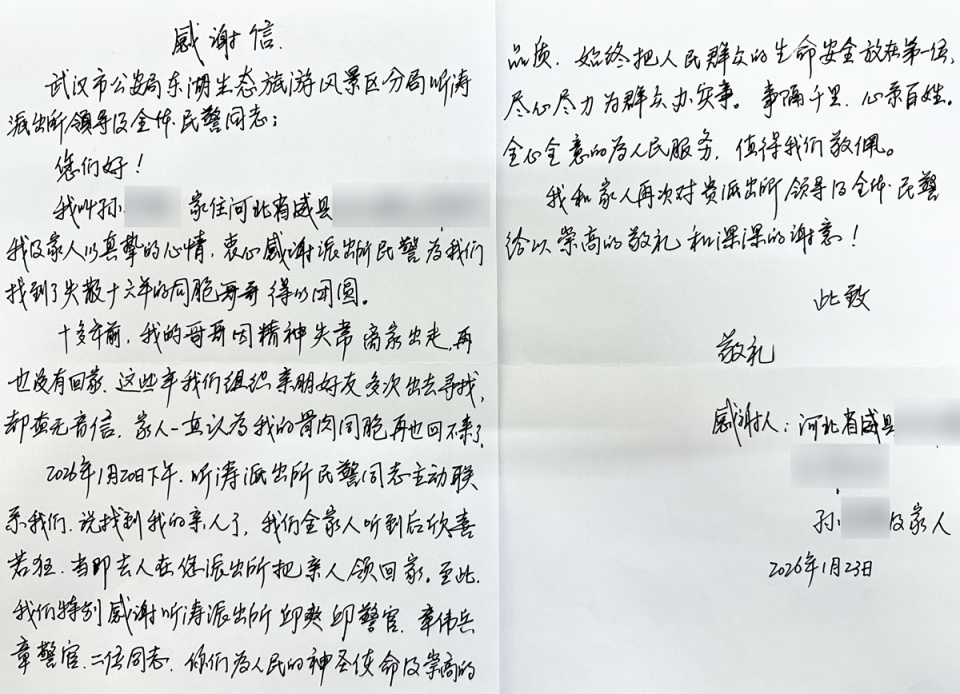 感谢信.
武汉市公安局东湖生态旅游风景区分局听涛
派出所领导及全体民警同志:
您们好!
我叫孙 家住河北省威县
我及家人以真挚的心情,衷心感谢派出所民警为我们
找到了失散十六年的同胞哥哥得以团圆。
十多年前,我的哥哥因精神失常离家出走,再
也没有回家.这些年我们组织亲朋好友多次出去寻找,
却杳无音信.家人一直认为我的骨肉同胞再也回不来了
2026年1月20日下午.听涛派出所民警同志主动联
系我们.说找到我的亲人了,我们全家人听到后欣喜
若狂.当即去人在您派出所把亲人领回家。至此.
我们特别感谢听涛派出所邱爽邱警官.章伟兵
章警官.二位同志.你们为人民的神圣使命及崇高的
品质.始终把人民群众的生命安全放在第一位,
尽心尽力为群众办实事。事隔千里.心系百姓.
全心全意的为人民服务.值得我们敬佩。
我和家人再次对贵派出所领导及全体民警
给以崇高的敬礼和深深的谢意!
此致
敬礼
感谢人:河北省威县
孙 及家人
2026年1月23日